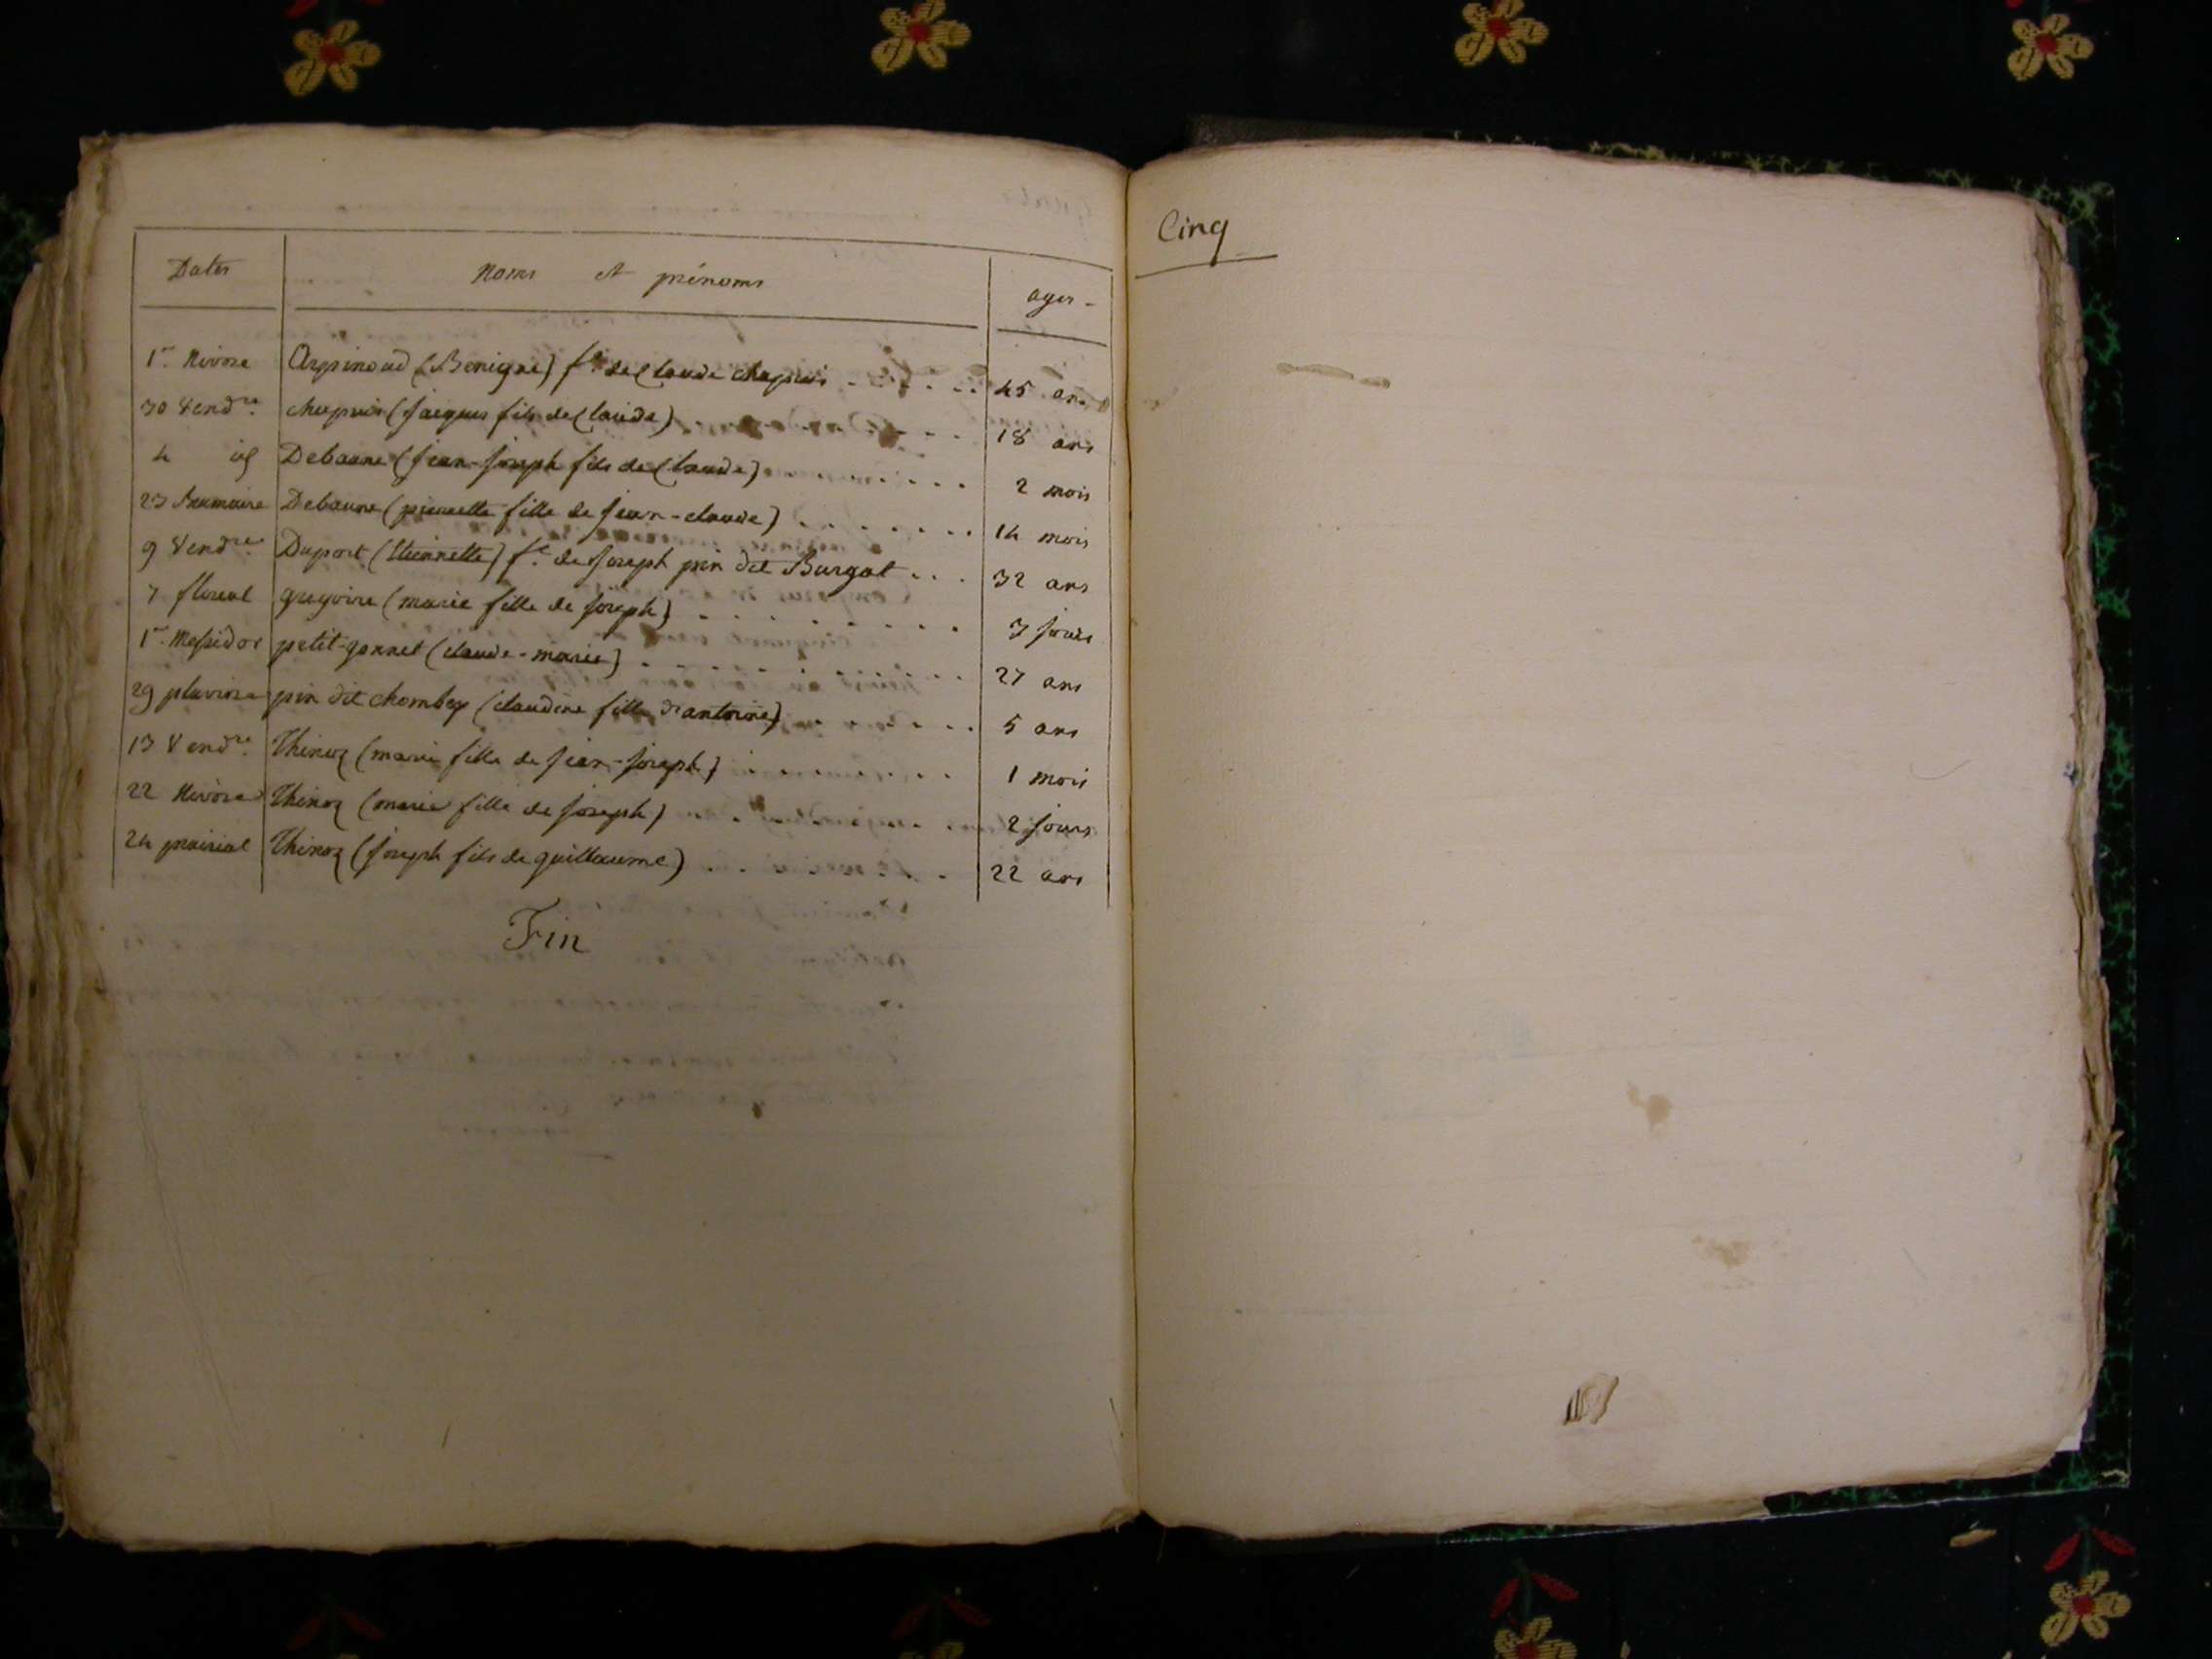 Dates Noms et prénoms ages
1er Nivose Arpinoud (Benigne) fe de Claude chapuis 45 ans
30 Vendre chapuis (Jacques fils de Claude) 18 ans
4 id Debaune (Jean-Joseph fils de Claude) 2 mois
23 brumaire Debaune (pierrette fille de Jean-claude) 14 mois
9 Vendre Duport (Etiennette) fe de Joseph pin dit Burgat 32 ans
7 floreal gregoire (marie fille de Joseph) 7 jours
1er Messidor petit-gonnet (claude-marie) 27 ans
29 pluviose pin dit chombey (claudine fille d'antoine) 5 ans
13 Vendre Thinoz (marie fille de Jean-Joseph) 1 mois
22 Nivose Thinoz (marie fille de Joseph) 2 jours
24 prairial Thinoz (Joseph fils de guillaume) 22 ans
Fin
Cinq